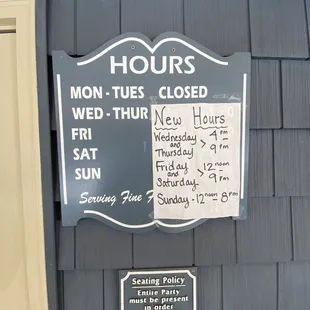 HOURS
MON - TUES CLOSED
WED - THUR
FRI
SAT
SUN
Serving Fine F
New Hours
Wednesday and Thursday > 4 pm 9 pm
Friday and Saturday > 12 noon 9 pm
Sunday - 12 noon - 8 pm
Seating Policy
Entire Party
must be present
in order